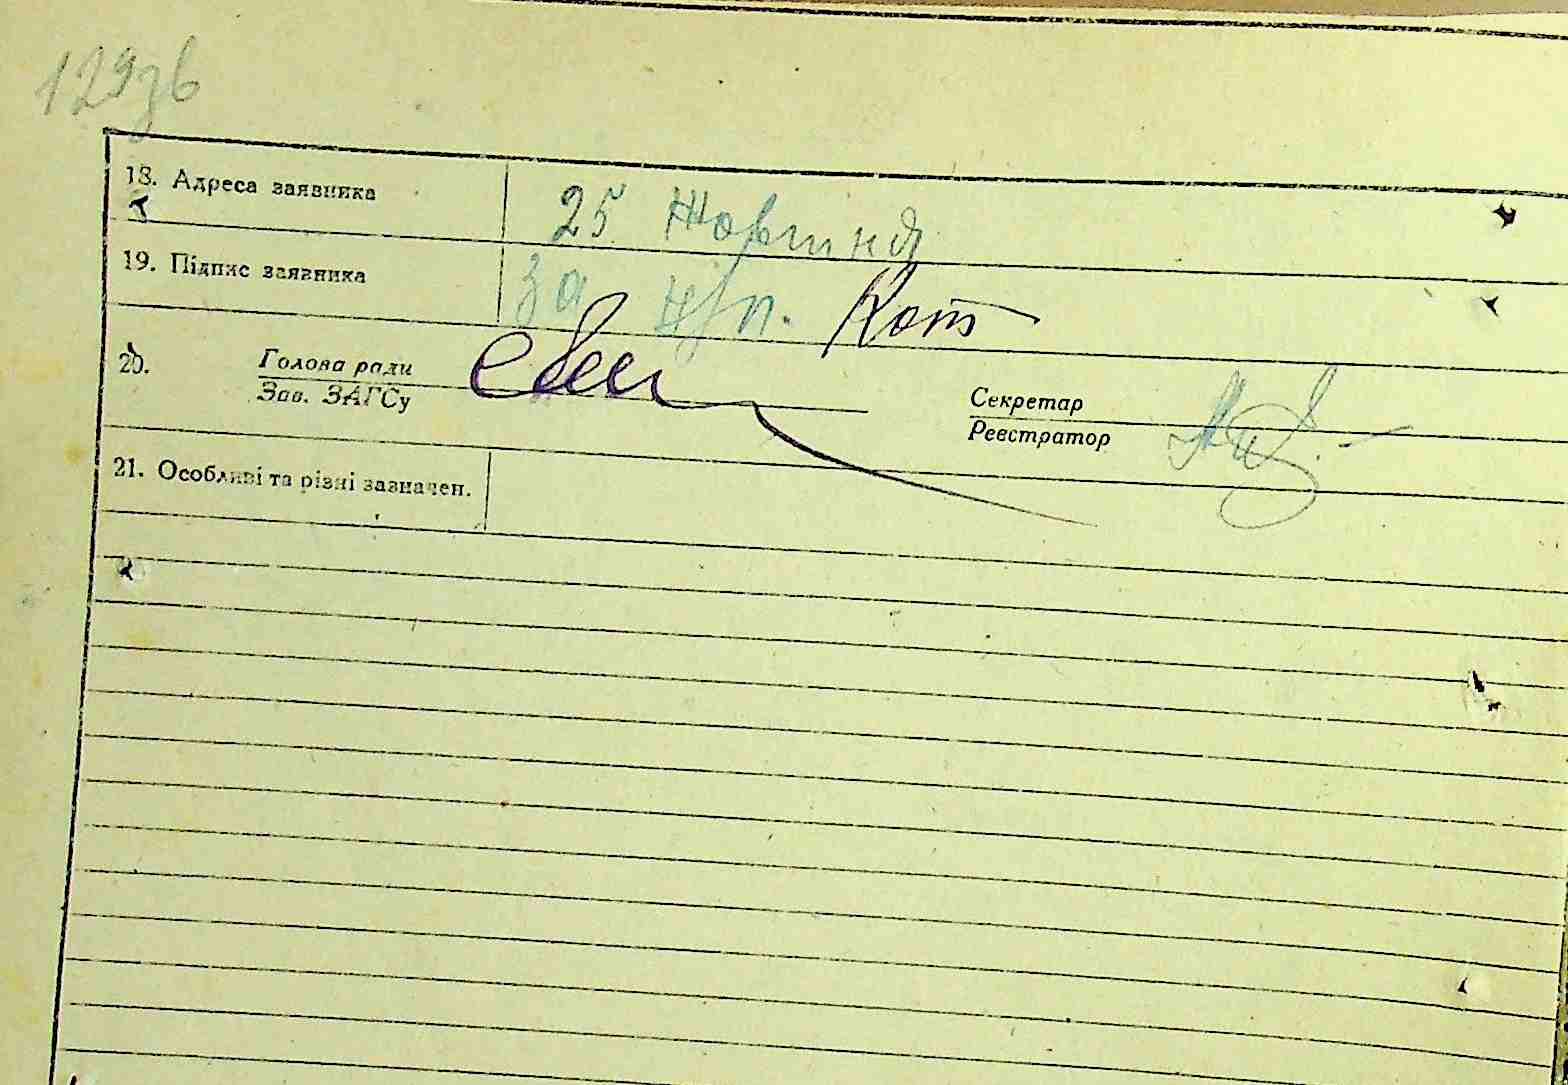 129зв
18. Адреса заявника 25 Жовтня
19. Підпис заявника за Кот
20. Голова ради Секретар
Зав. ЗАГСу Реєстратор
21. Особливі та різні зазначен.